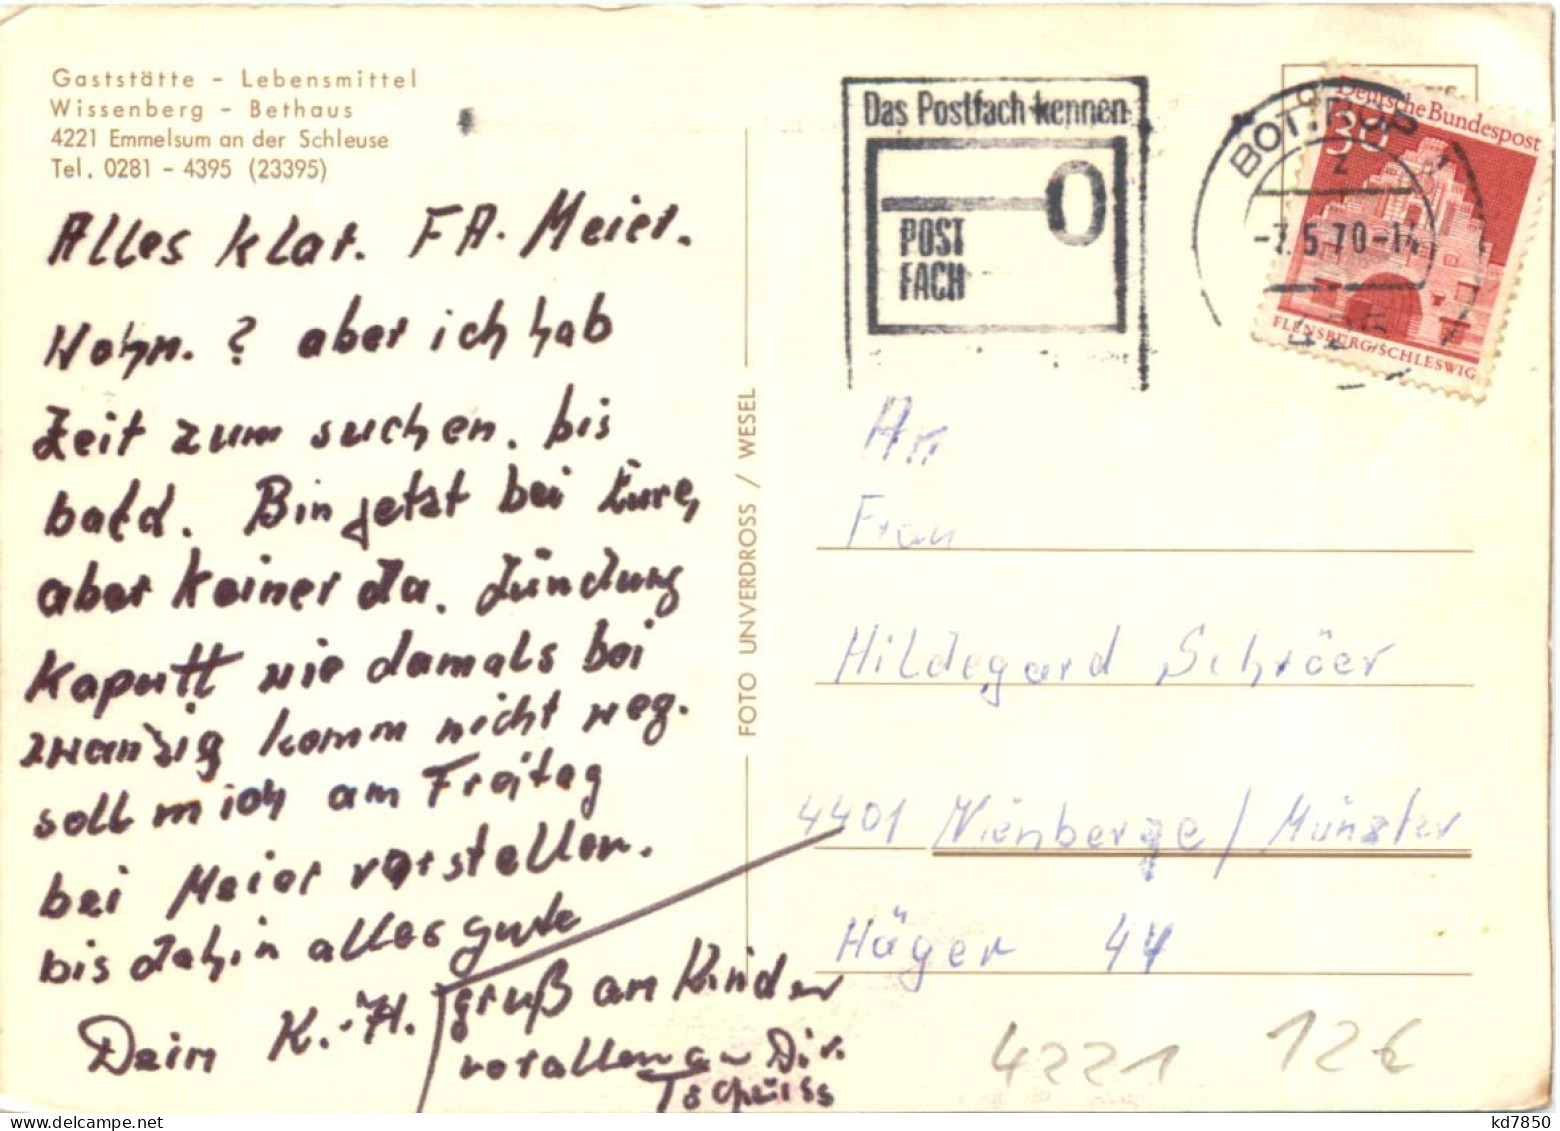 Gaststätte - Lebensmittel
Wissenberg - Bethaus
4221 Emmelsum an der Schleuse
Tel. 0281 - 4395 (23395)
Alles klar. FA. Meier.
Wohn. ? aber ich hab
Zeit zum suchen. bis
bald. Bin jetzt bei Eure,
aber keiner da. Zündung
kaputt wie damals bei
zwanzig komm nicht weg.
soll mich am Freitag
bei Meier vorstellen.
bis dahin alles gute
Dein K.-H.
gruß an Kinder
vor allen an Dir.
Tschüss
FOTO UNVERDROSS / WESEL
Das Postfach kennen
POST
FACH
BOTTROP
z
-7.5.70-14
Deutsche Bundespost
30
FLENSBURG/SCHLESWIG
An
Frau
Hildegard Schröer
4401 Nienberge / Münster
Häger 44
4221 12€
kd7850